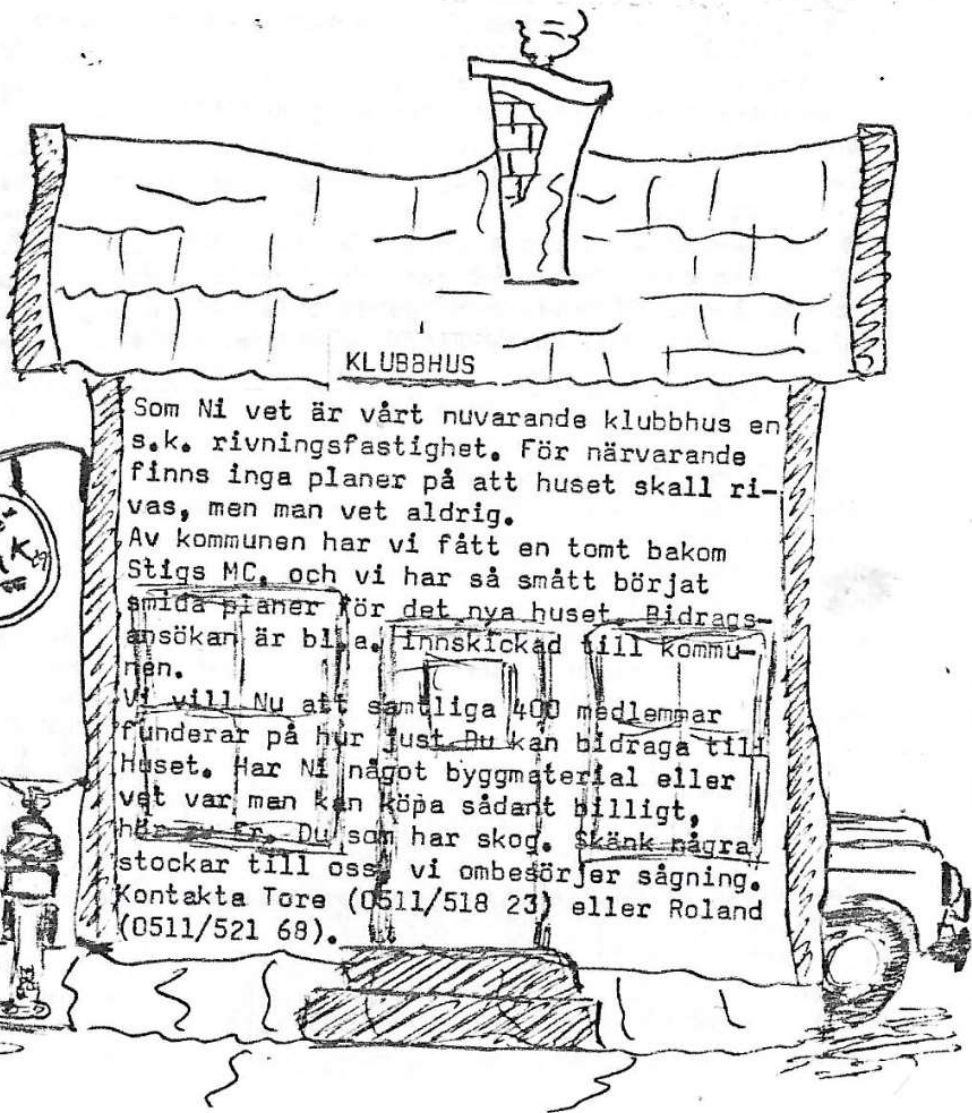 KLUBBHUS
Som Ni vet är vårt nuvarande klubbhus en
s.k. rivningsfastighet. För närvarande
finns inga planer på att huset skall ri-
vas, men man vet aldrig.
Av kommunen har vi fått en tomt bakom
Stigs MC, och vi har så smått börjat
smida planer för det nya huset. Bidrags-
ansökan är bl.a. innskickad till kommu-
nen.
Vi vill Nu att samtliga 400 medlemmar
funderar på hur just Du kan bidraga till
Huset. Har Ni något byggmaterial eller
vet var man kan köpa sådant billigt,
hör av Er. Du som har skog. Skänk några
stockar till oss, vi ombesörjer sågning.
Kontakta Tore (0511/518 23) eller Roland
(0511/521 68).